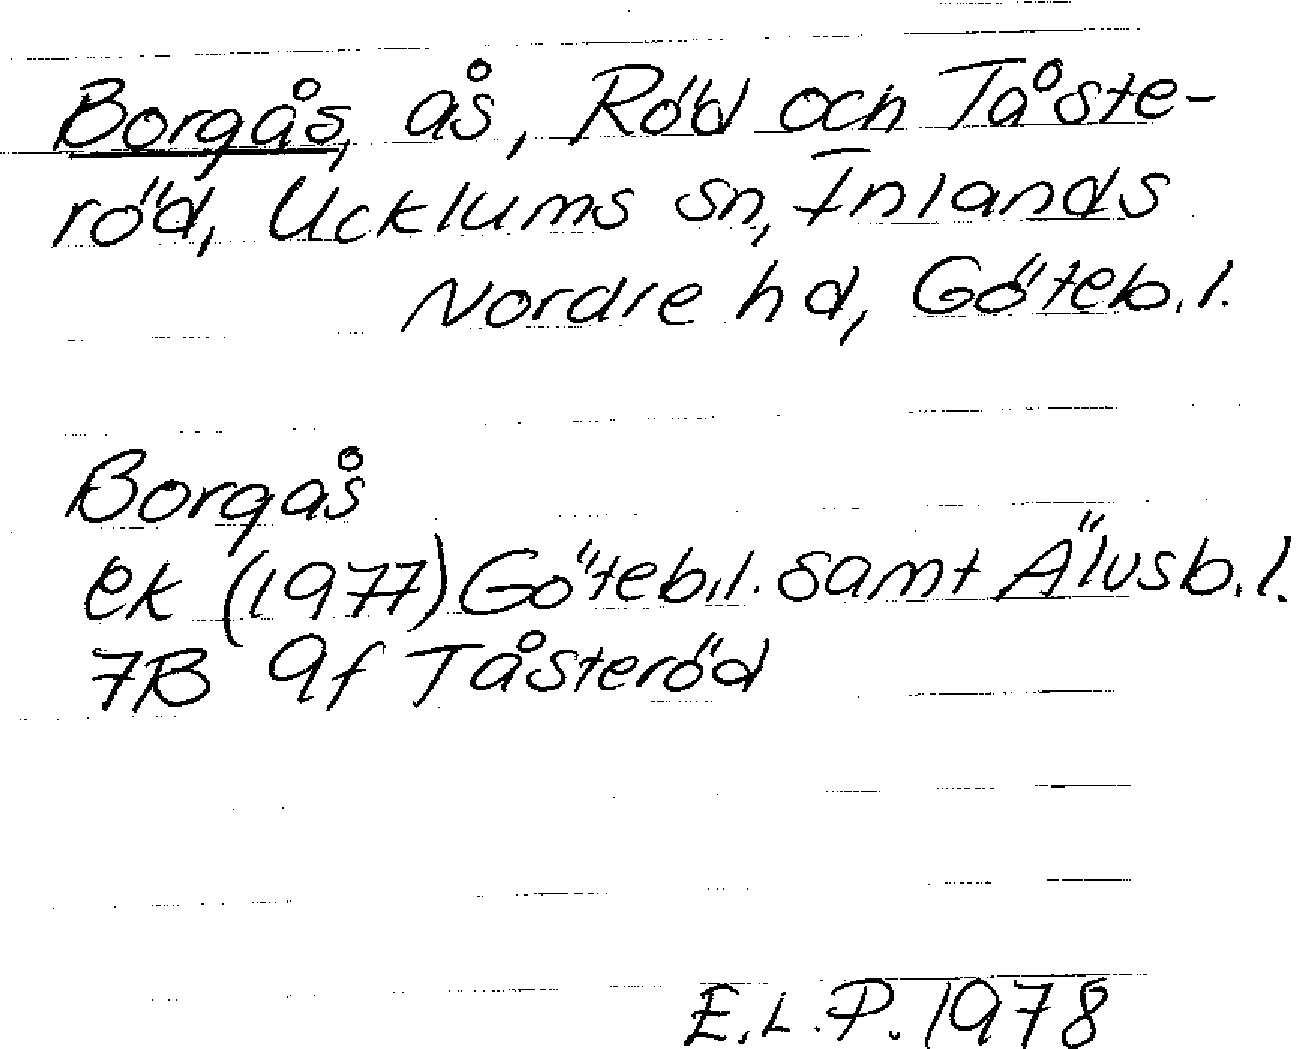 Borgås, ås, Röd och Tåste-
röd, Ucklums sn, Inlands
Nordre hd, Göteb.l.
Borgås
ek (1977) Göteb.l. samt Älvsb.l.
7B 9f Tåsteröd
E.L.P. 1978